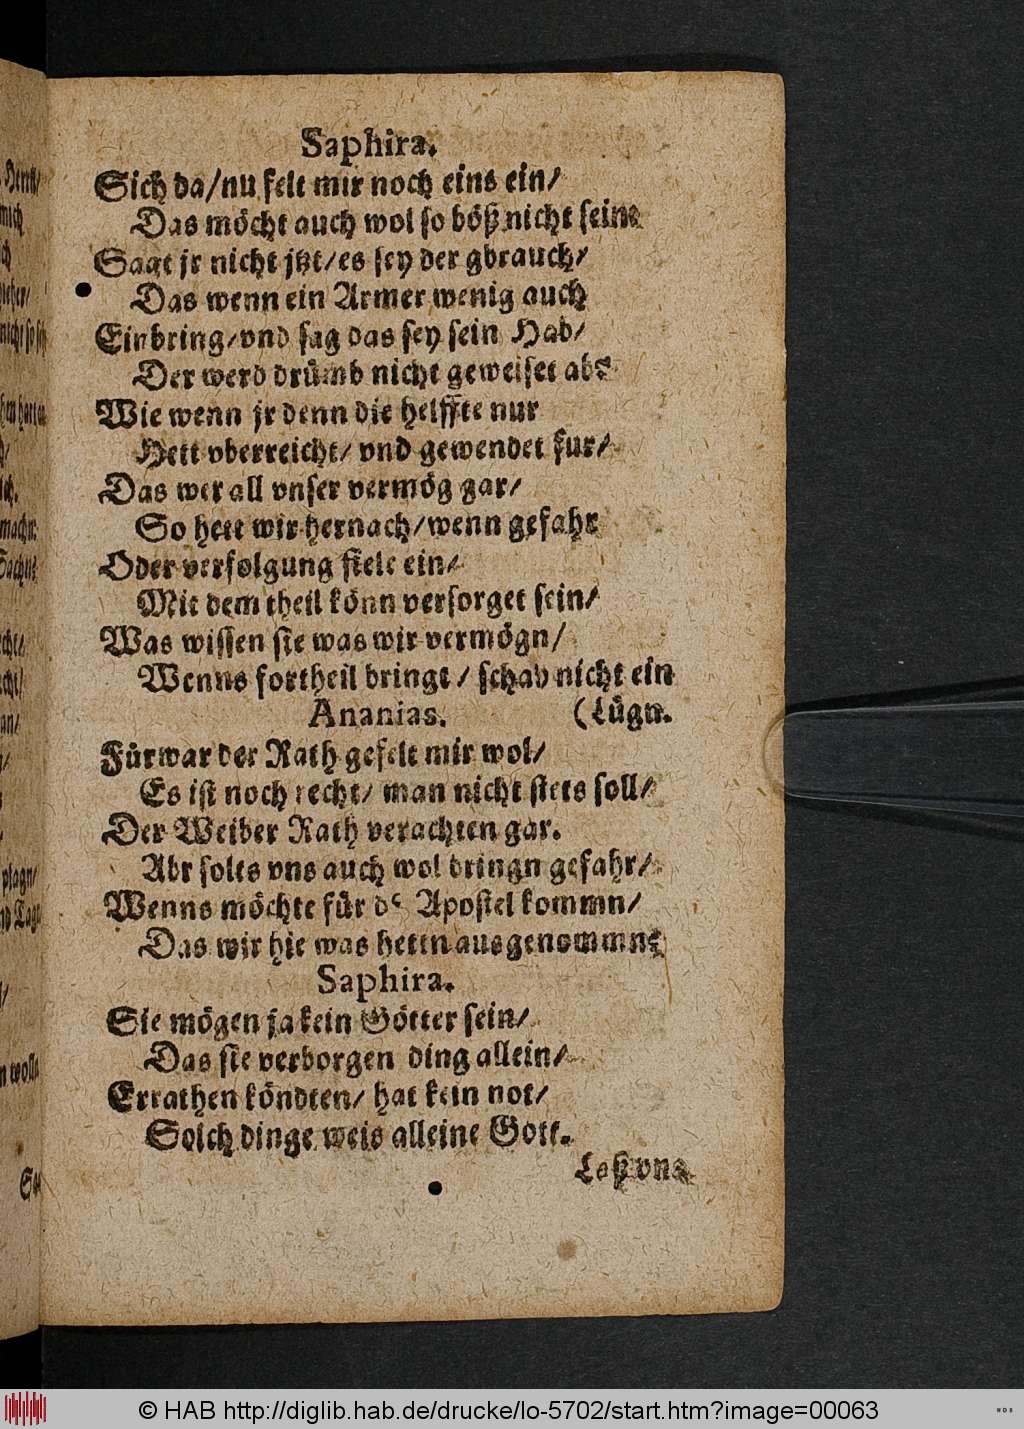 Saphira.
Sich da/nu felt mir noch eins ein/
Das möcht auch wol so böß nicht sein:
Sagt jr nicht jtzt/es sey der gbrauch/
Das wenn ein Armer wenig auch
Einbring/vnd sag das sey sein Hab/
Der werd drümb nicht geweiset ab?
Wie wenn jr denn die helffte nur
Hett vberreicht/ vnd gewendet fur/
Das wer all vnser vermög gar/
So hett wir hernach/wenn gefahr
Oder verfolgung fiele ein/
Mit dem theil könn versorget sein/
Was wissen sie was wir vermögn/
Wenns fortheil bringt/ schad nicht ein
Ananias. (Lügn.
Fürwar der Rath gefelt mir wol/
Es ist noch recht/ man nicht stets soll/
Der Weiber Rath verachten gar.
Abr solts vns auch wol bringn gefahr/
Wenns möchte für d' Apostel kommn/
Das wir hie was hettn ausgenommn?
Saphira.
Sie mögen ja kein Götter sein/
Das sie verborgen ding allein/
Errathen köndten/ hat kein not/
Solch dinge weis alleine Gott.
Laß vns
© HAB http://diglib.hab.de/drucke/lo-5702/start.htm?image=00063